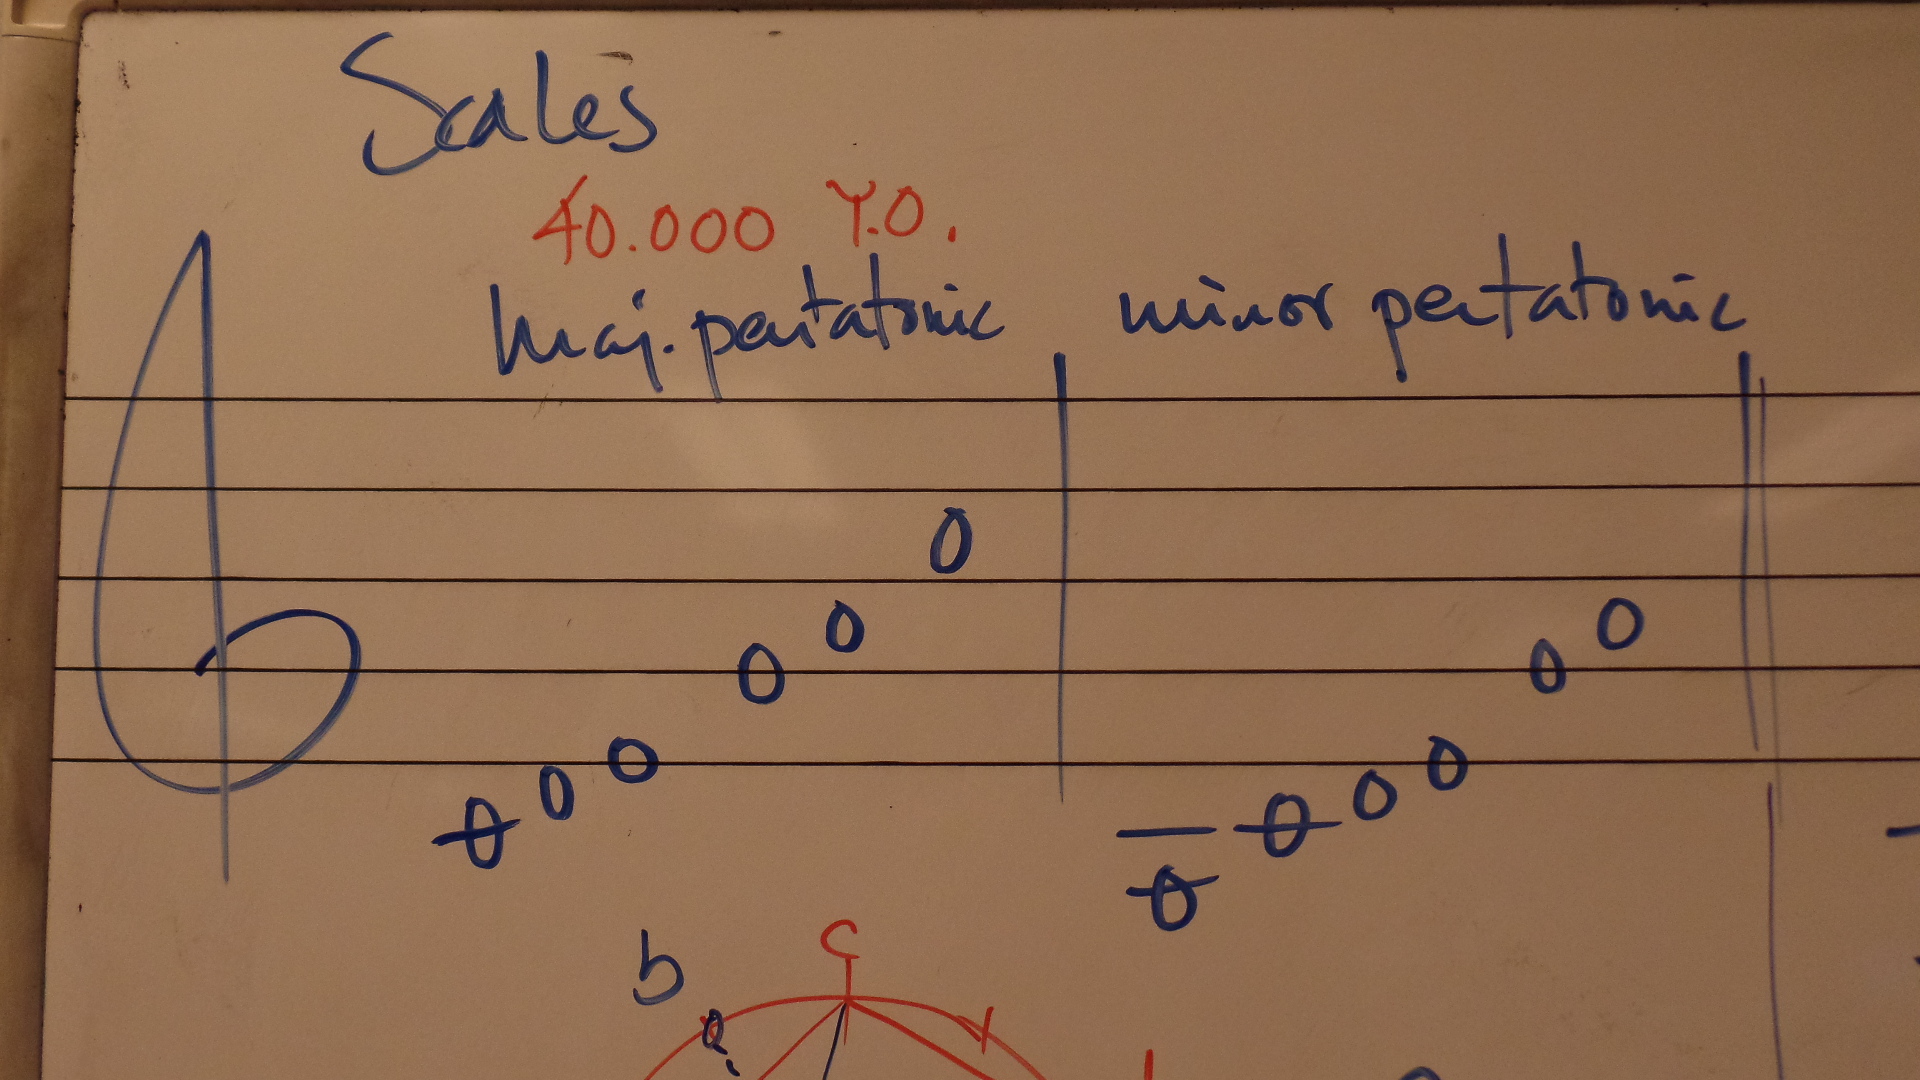 Scales
40.000 Y.O.
maj. pentatonic minor pentatonic
b
C